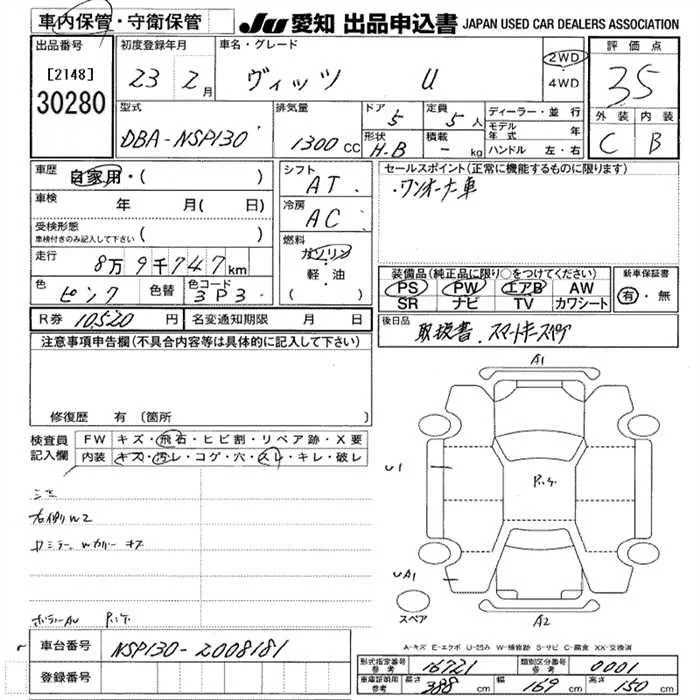 車内保管・守衛保管
JU 愛知 出品申込書 JAPAN USED CAR DEALERS ASSOCIATION
出品番号
[2148]
30280
初度登録年月
23 2月
車名・グレード
ヴィッツ U
2WD
・
4WD
評価点
35
外装 内装
C B
型式
DBA-NSP130
排気量
1300cc
ドア 5
定員 5人
形状 H.B
積載 - kg
ディーラー・並行
モデル年式 年
ハンドル 左・右
車歴 自家用・( )
車検 年 月( 日)
受検形態
車検付きのみ記入して下さい ( )
走行 8万9千747km
色 ピンク 色替 色コード 3P3
シフト
AT
冷房
AC
燃料
ガソリン
軽・油
( )
セールスポイント(正常に機能するものに限ります)
・ワンオーナー車
装備品(純正品に限り○をつけてください)
PS PW エアB AW
SR ナビ TV カワシート
新車保証書
有・無
R券 10520円 名変通知期限 月 日
後日品
取扱書、スマートキースペア
注意事項申告欄(不具合内容等は具体的に記入して下さい)
修復歴 有(箇所 )
検査員
記入欄
FW キズ・飛石・ヒビ割・リペア跡・X要
内装 キズ・汚レ・コゲ・穴・スレ・キレ・破レ
右側W2
ボデーAU P.いケ
A1
U1
P.いケ
UA1
スペア
A2
A-キズ E-エクボ U-凹み W-補修跡 S-サビ C-腐食 XX-交換済
車台番号 NSP130-2008181
登録番号
形式指定番号 参考 16721 類別区分番号 参考 0001
車庫証明用 参考 長さ 388cm 幅 169cm 高さ 150cm